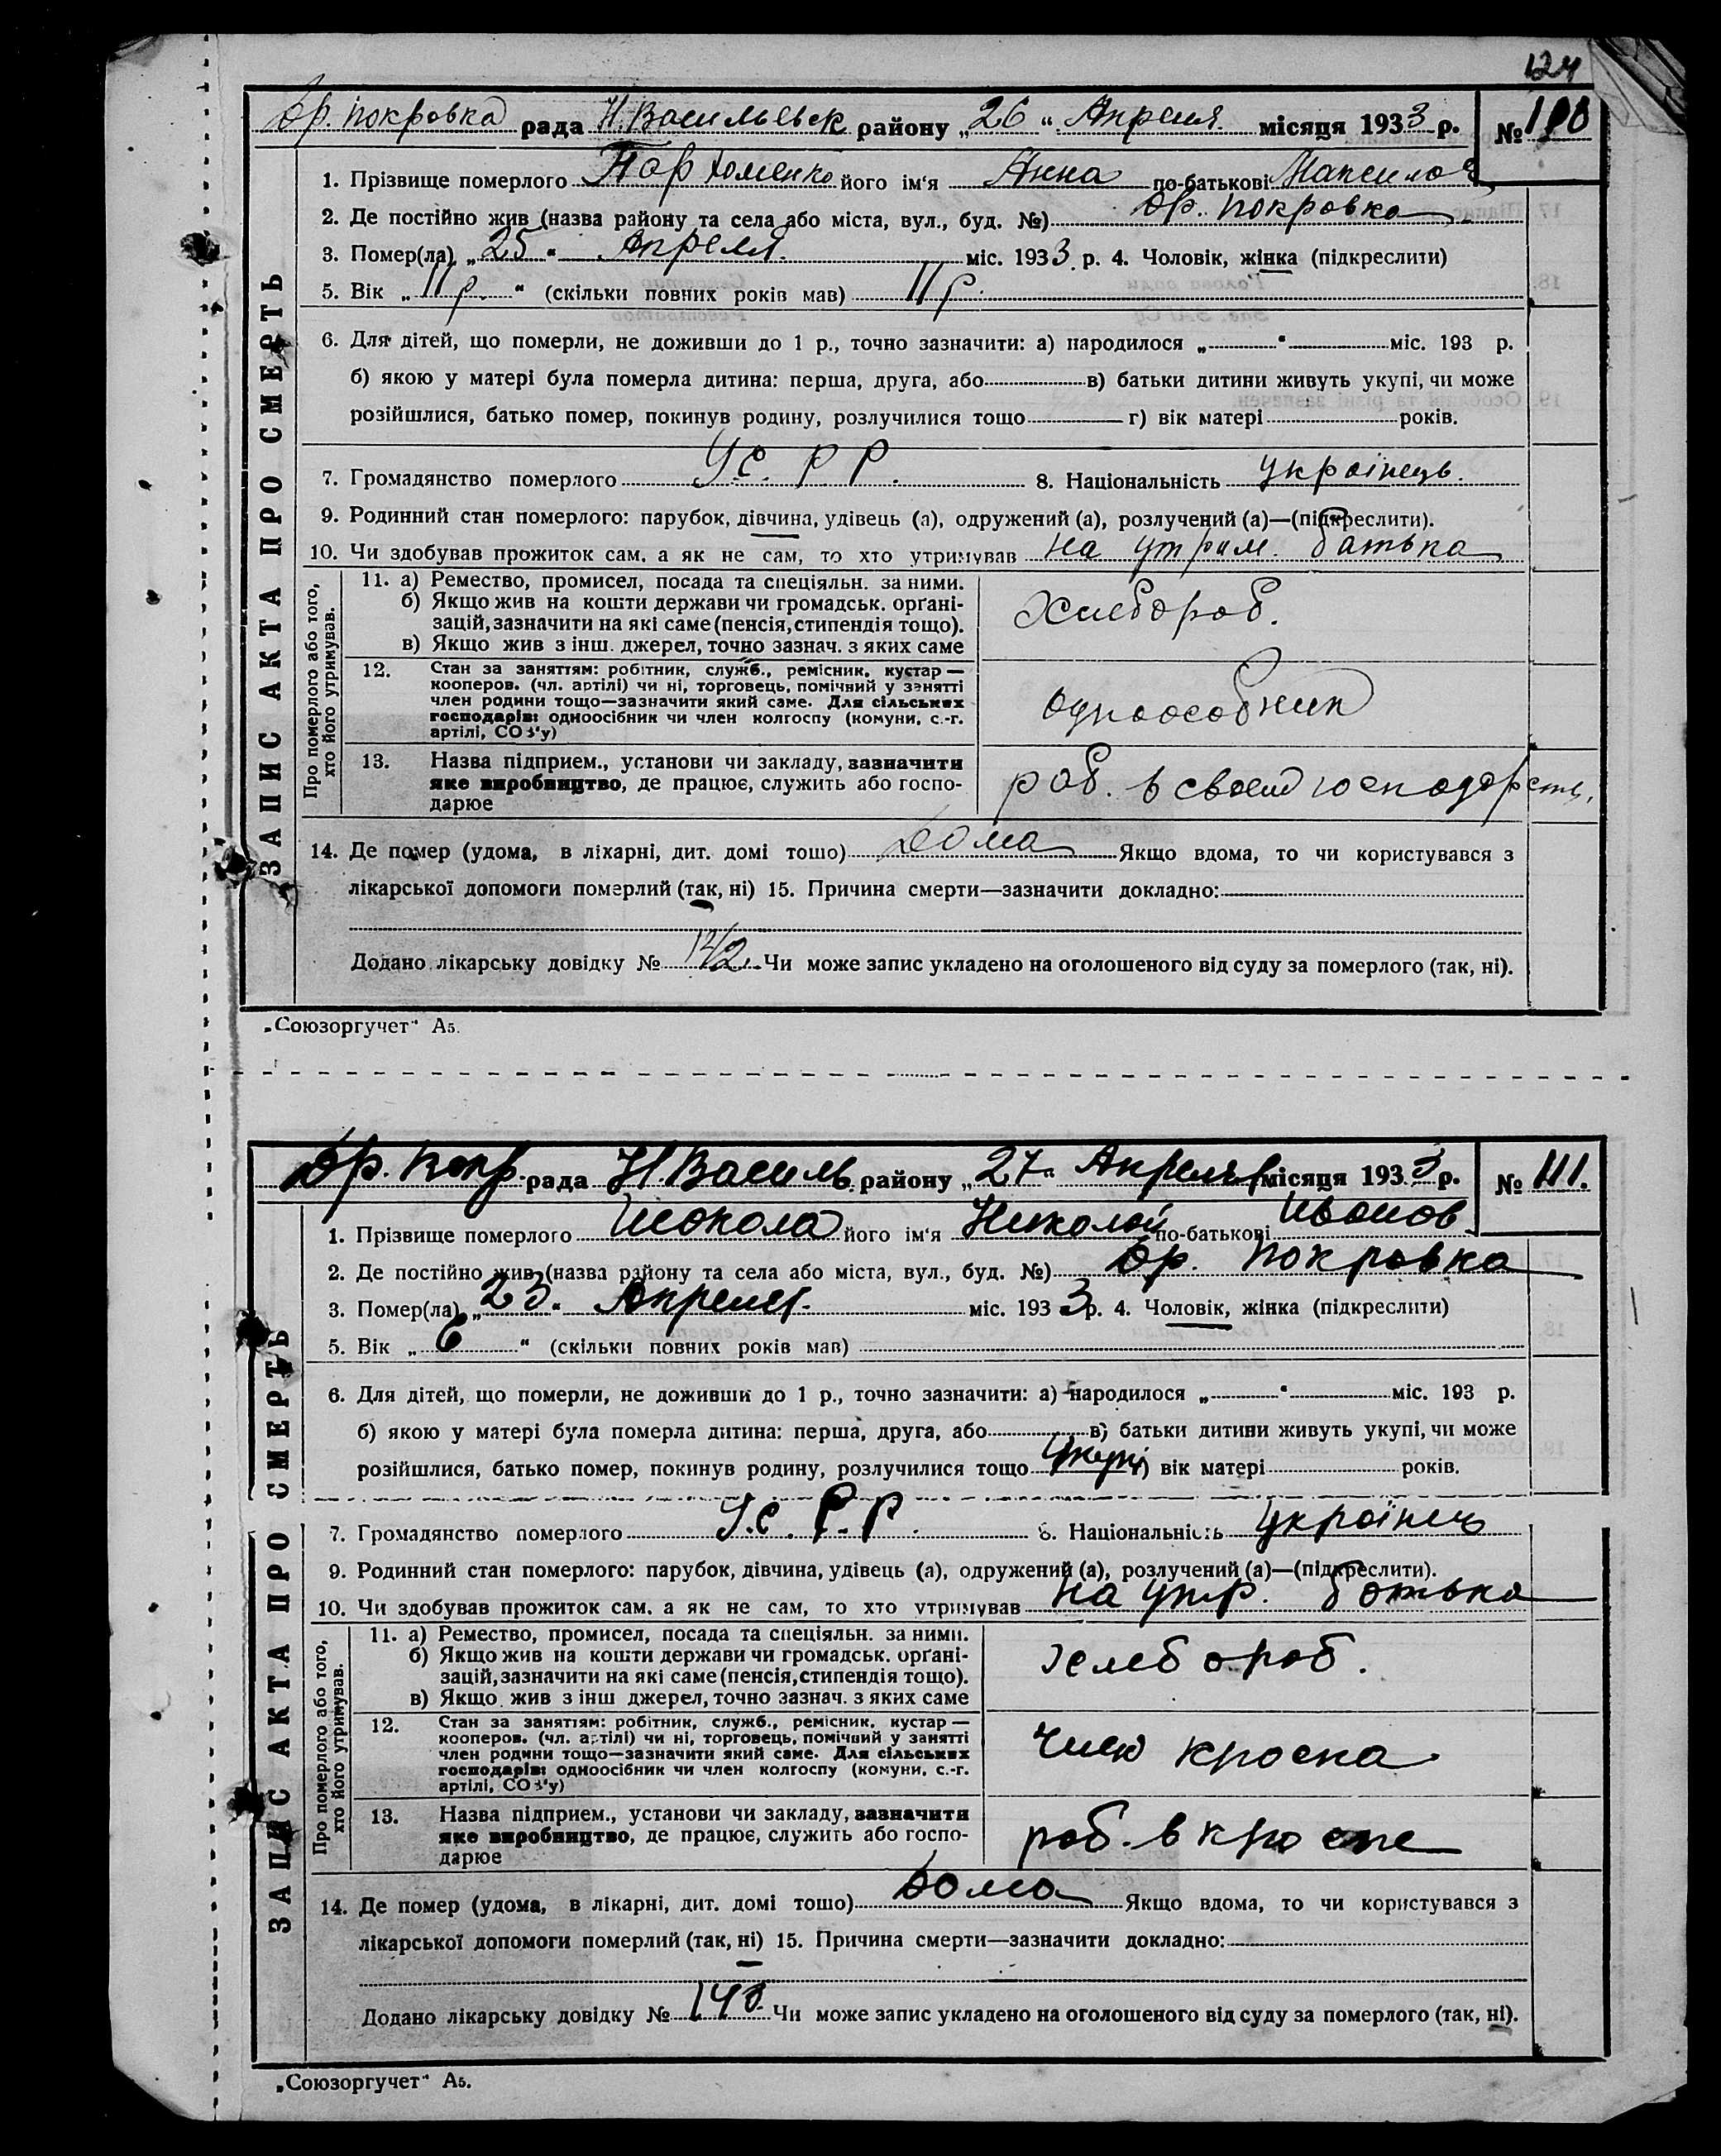 124
Др. Покровка рада Н. Васильевск району „26“ Апреля місяця 1933 р. № 110
1. Прізвище померлого Пархоменко його ім'я Анна по-батькові Максимов
2. Де постійно жив (назва району та села або міста, вул., буд. №) Др. Покровка
3. Помер(ла) „25“ Апреля міс. 1933 р. 4. Чоловік, жінка (підкреслити)
5. Вік „11 р.“ (скільки повних років мав) 11 р.
6. Для дітей, що померли, не доживши до 1 р., точно зазначити: а) народилося „ “ міс. 193 р.
б) якою у матері була померла дитина: перша, друга, або в) батьки дитини живуть укупі, чи може
розійшлися, батько помер, покинув родину, розлучилися тощо г) вік матері років.
7. Громадянство померлого У.С.Р.Р. 8. Національність українець.
9. Родинний стан померлого: парубок, дівчина, удівець (а), одружений (а), розлучений (а)—(підкреслити).
10. Чи здобував прожиток сам, а як не сам, то хто утримував на утрим. батька
ЗАПИС АКТА ПРО СМЕРТЬ
Про померлого або того, хто його утримував.
11. а) Ремество, промисел, посада та спеціяльн. за ними.
б) Якщо жив на кошти держави чи громадськ. орґані-
зацій, зазначити на які саме (пенсія, стипендія тощо).
в) Якщо жив з інш. джерел, точно зазнач. з яких саме
Хлебороб.
12. Стан за заняттям: робітник, служб., ремісник, кустар —
кооперов. (чл. артілі) чи ні, торговець, помічний у занятті
член родини тощо—зазначити який саме. Для сільських
господарів: одноосібник чи член колгоспу (комуни, с.-г.
артілі, СОЗ'у)
одноособник
13. Назва підприєм., установи чи закладу, зазначити
яке виробництво, де працює, служить або госпо-
дарює
роб. в своем господарств.
14. Де помер (удома, в лікарні, дит. домі тощо) Дома Якщо вдома, то чи користувався з
лікарської допомоги померлий (так, ні) 15. Причина смерти—зазначити докладно:
Додано лікарську довідку № 142 Чи може запис укладено на оголошеного від суду за померлого (так, ні).
„Союзоргучет“ А5.
Др. Покр. рада Н. Василь. району „27“ Апреля місяця 1933 р. № 111.
1. Прізвище померлого його ім'я Николай по-батькові Иванов
2. Де постійно жив (назва району та села або міста, вул., буд. №) Др. Покровка
3. Помер(ла) „23“ Апреля. міс. 1933 р. 4. Чоловік, жінка (підкреслити)
5. Вік „6“ (скільки повних років мав)
6. Для дітей, що померли, не доживши до 1 р., точно зазначити: а) народилося „ “ міс. 193 р.
б) якою у матері була померла дитина: перша, друга, або в) батьки дитини живуть укупі, чи може
розійшлися, батько помер, покинув родину, розлучилися тощо Укупі г) вік матері років.
7. Громадянство померлого У.С.Р.Р. 8. Національність Українець
9. Родинний стан померлого: парубок, дівчина, удівець (а), одружений (а), розлучений (а)—(підкреслити).
10. Чи здобував прожиток сам, а як не сам, то хто утримував на утр. батька
ЗАПИС АКТА ПРО СМЕРТЬ
Про померлого або того, хто його утримував.
11. а) Ремество, промисел, посада та спеціяльн. за ними.
б) Якщо жив на кошти держави чи громадськ. орґані-
зацій, зазначити на які саме (пенсія, стипендія тощо).
в) Якщо жив з інш джерел, точно зазнач. з яких саме
хлебороб.
12. Стан за заняттям: робітник, служб., ремісник, кустар —
кооперов. (чл. артілі) чи ні, торговець, помічний у занятті
член родини тощо—зазначити який саме. Для сільських
господарів: одноосібник чи член колгоспу (комуни, с.-г.
артілі, СОЗ'у)
13. Назва підприєм., установи чи закладу, зазначити
яке виробництво, де працює, служить або госпо-
дарює
роб. в
14. Де помер (удома, в лікарні, дит. домі тощо) Дома Якщо вдома, то чи користувався з
лікарської допомоги померлий (так, ні) 15. Причина смерти—зазначити докладно:
Додано лікарську довідку № 143 Чи може запис укладено на оголошеного від суду за померлого (так, ні).
„Союзоргучет“ А5.